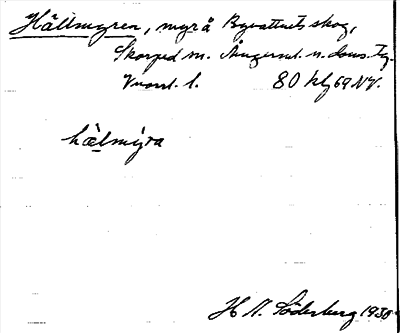 Hällmyren, myr å Byvattnets skog,
Skorped sn. Ångerml. n. doms. tg.
Vnorrl. l. 80 Hg 69 NV.
hä̀lmýra
H N. Söderberg 1930